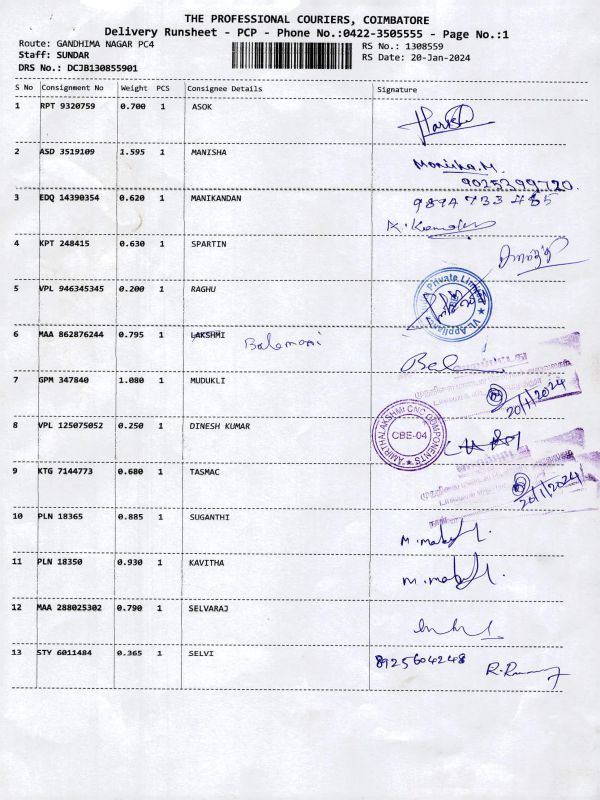 THE PROFESSIONAL COURIERS, COIMBATORE
Delivery Runsheet - PCP - Phone No.:0422-3505555 - Page No.:1
Route: GANDHIMA NAGAR PC4
Staff: SUNDAR
DRS No.: DCJB130855901
RS No.: 1308559
RS Date: 20-Jan-2024
S No Consignment No Weight PCS Consignee Details Signature
1 RPT 9320759 0.700 1 ASOK Harish
2 ASD 3519109 1.595 1 MANISHA Monisha.M.
9025399720.
3 EDQ 14390354 0.620 1 MANIKANDAN
4 KPT 248415 0.630 1 SPARTIN
5 VPL 946345345 0.200 1 RAGHU
Private Limited
6 MAA 862876244 0.795 1 LAKSHMI Balamani
7 GPM 347840 1.080 1 MUDUKLI
20/1/2024
8 VPL 125075052 0.250 1 DINESH KUMAR
AMIRTHALAKSHMI CNC COMPONENTS
CBE-04
9 KTG 7144773 0.680 1 TASMAC
20/1/2024
10 PLN 18365 0.885 1 SUGANTHI
11 PLN 18350 0.930 1 KAVITHA
12 MAA 288025302 0.790 1 SELVARAJ
13 STY 6011484 0.365 1 SELVI 8925604248